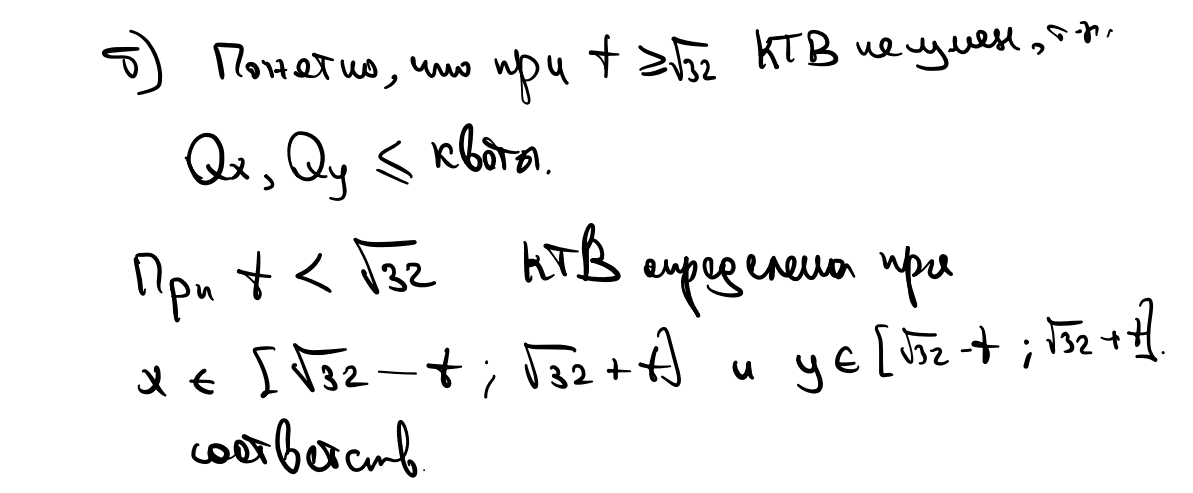 б) Понятно, что при t ≥ √32 КТВ не умен, т.к.
Qx, Qy ≤ квоты.
При t < √32 КТВ определена при
x ∈ [√32 - t ; √32 + t] и y ∈ [√32 - t ; √32 + t].
соответств.